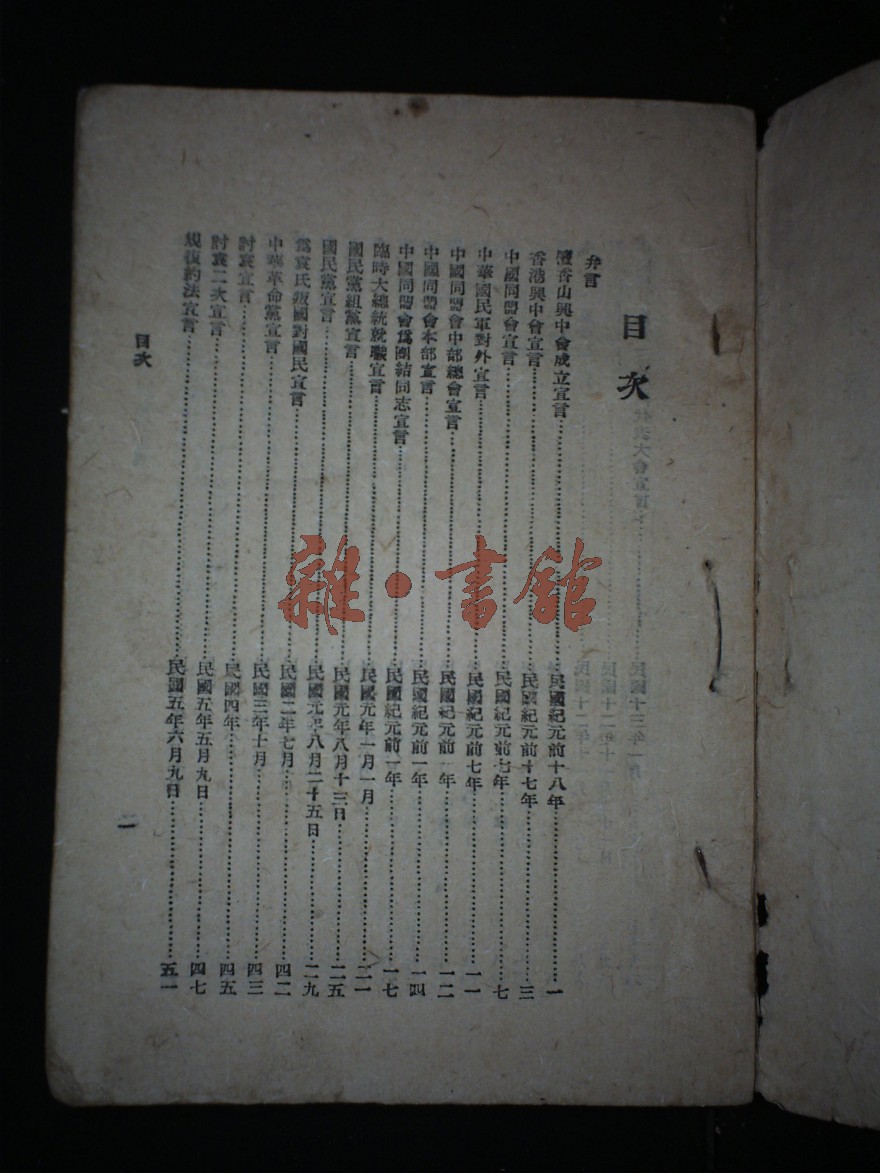 目次
弁言
檀香山興中會成立宣言……民國紀元前十八年……一
香港興中會宣言……民國紀元前十七年……三
中國同盟會宣言……民國紀元前七年……七
中華國民軍對外宣言……民國紀元前七年……一一
中國同盟會中部總會宣言……民國紀元前一年……一二
中國同盟會本部宣言……民國紀元前一年……一四
中國同盟會爲團結同志宣言……民國紀元前一年……一七
臨時大總統就職宣言……民國元年一月一月……二一
國民黨組黨宣言……民國元年八月十三日……二五
國民黨宣言……民國元年八月二十五日……二九
爲袁氏叛國對國民宣言……民國二年七月……四二
中華革命黨宣言……民國三年十月……四三
討袁宣言……民國四年……四五
討袁二次宣言……民國五年五月九日……四七
規復約法宣言……民國五年六月九日……五一
目次
一
雜·書館